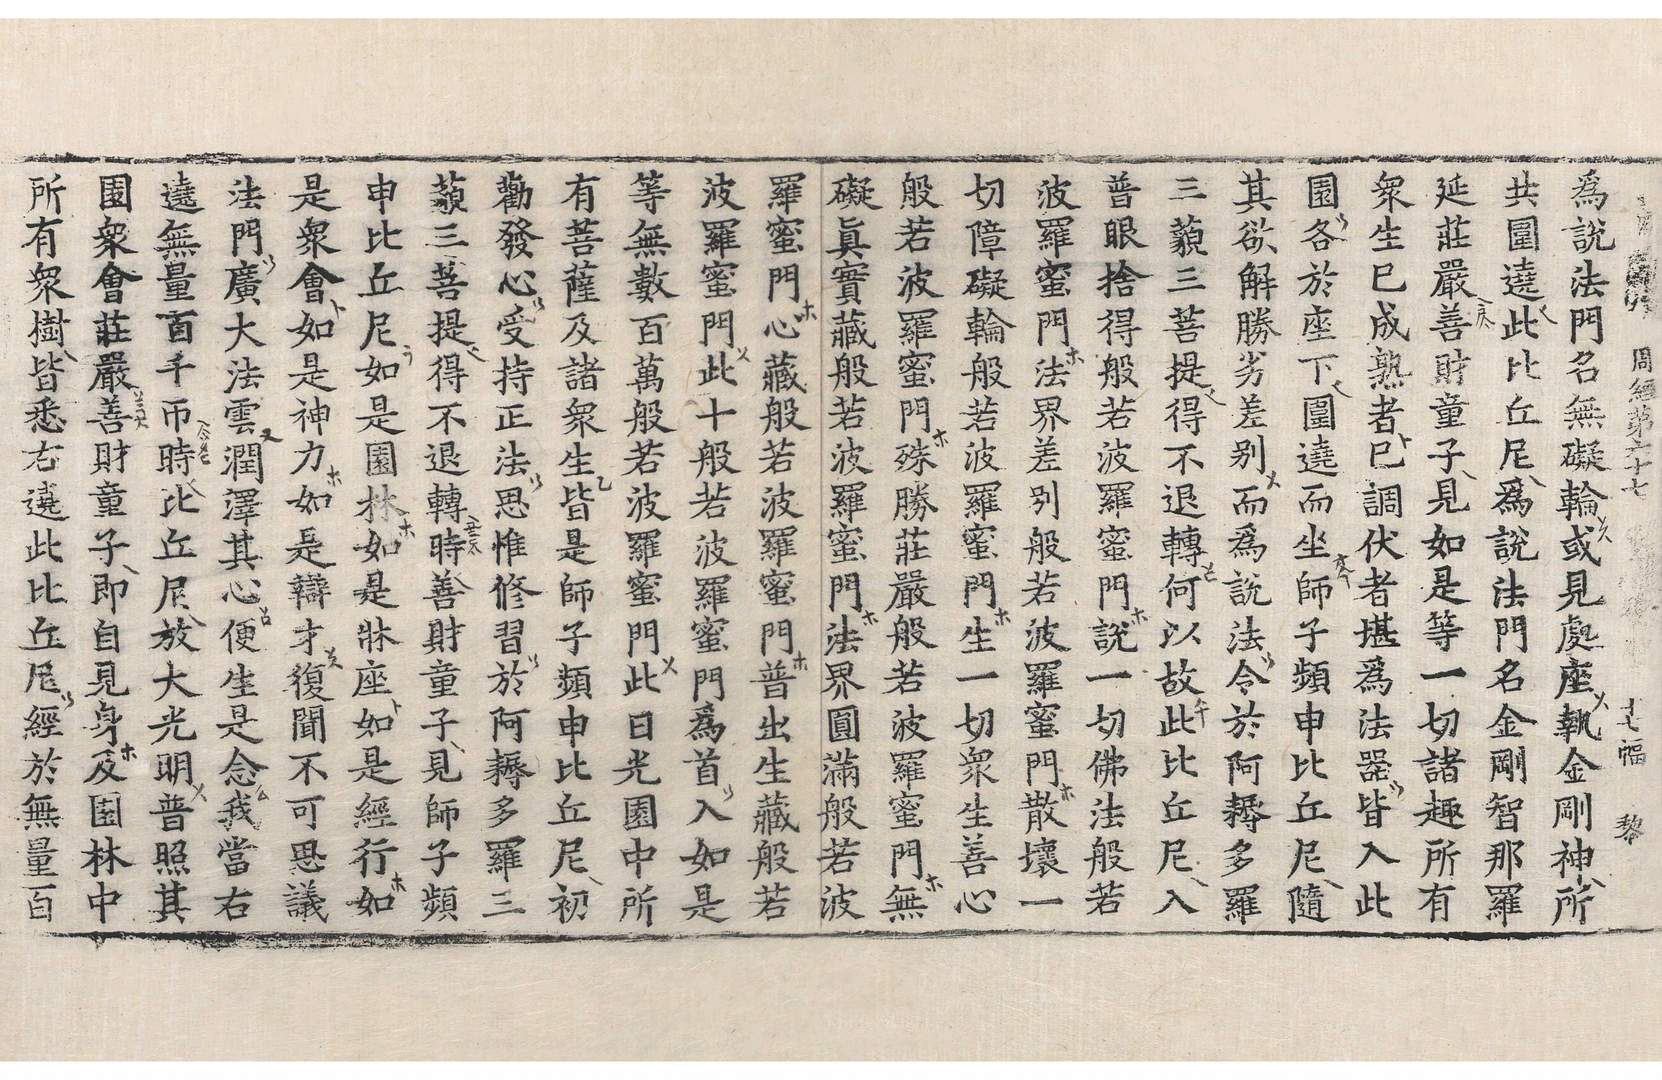 周經第六十七 十七幅 黎
為說法門名無礙輪或見處座執金剛神所
共圍遶此比丘尼為說法門名金剛智那羅
延莊嚴善財童子見如是等一切諸趣所有
衆生已成熟者已調伏者堪為法器皆入此
園各於座下圍遶而坐師子頻申比丘尼隨
其欲解勝劣差别而為說法令於阿耨多羅
三藐三菩提得不退轉何以故此比丘尼入
普眼捨得般若波羅蜜門說一切佛法般若
波羅蜜門法界差别般若波羅蜜門散壞一
切障礙輪般若波羅蜜門生一切衆生善心
般若波羅蜜門殊勝莊嚴般若波羅蜜門無
礙眞實藏般若波羅蜜門法界圓滿般若波
羅蜜門心藏般若波羅蜜門普出生藏般若
波羅蜜門此十般若波羅蜜門為首入如是
等無數百萬般若波羅蜜門此日光園中所
有菩薩及諸衆生皆是師子頻申比丘尼初
勸發心受持正法思惟修習於阿耨多羅三
藐三菩提得不退轉時善財童子見師子頻
申比丘尼如是園林如是牀座如是經行如
是衆會如是神力如是辯才復聞不可思議
法門廣大法雲潤澤其心便生是念我當右
遶無量百千帀時比丘尼放大光明普照其
園衆會莊嚴善財童子即自見身及園林中
所有衆樹皆悉右遶此比丘尼經於無量百